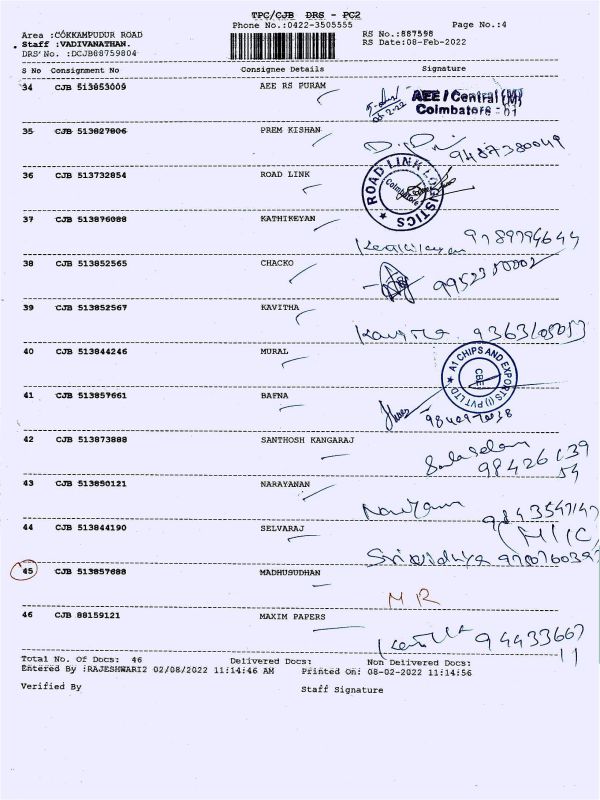 TPC/CJB DRS - PC2
Phone No.:0422-3505555 Page No.:4
Area :COKKAMPUDUR ROAD RS No.:887598
Staff :VADIVANATHAN. RS Date:08-Feb-2022
DRS No. :DCJB88759804
S No Consignment No Consignee Details Signature
34 CJB 513853009 AEE RS PURAM
AEE / Central (M)
Coimbatore - 11
35 CJB 513827806 PREM KISHAN
9487380049
36 CJB 513732854 ROAD LINK
ROAD LINK LOGISTICS
Coimbatore
37 CJB 513876088 KATHIKEYAN
9789794644
38 CJB 513852565 CHACKO
39 CJB 513852567 KAVITHA
Kavitha
40 CJB 513844246 MURAL
A1 CHIPS AND EXPORTS (I) PVT LTD
CBE
41 CJB 513857661 BAFNA
42 CJB 513873888 SANTHOSH KANGARAJ
98426139
54
43 CJB 513850121 NARAYANAN
44 CJB 513844190 SELVARAJ
Srividhya
45 CJB 513857688 MADHUSUDHAN
MR
46 CJB 88159121 MAXIM PAPERS
94433667
11
Total No. Of Docs: 46 Delivered Docs: Non Delivered Docs:
Entered By :RAJESHWARI2 02/08/2022 11:14:46 AM Printed On: 08-02-2022 11:14:56
Verified By Staff Signature